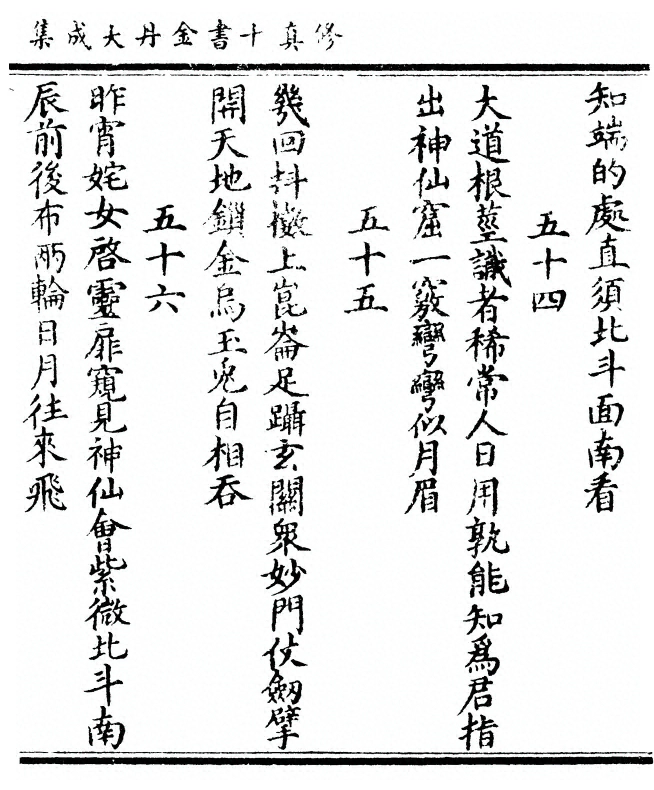 修真十書金丹大成集
知端的處直須北斗面南看
五十四
大道根莖識者稀常人日用孰能知為君指
出神仙窟一竅彎彎似月眉
五十五
幾回抖擻上崑崙足躡玄關眾妙門仗劒擘
開天地鎖金烏玉兔自相吞
五十六
昨宵姹女啓靈扉窺見神仙會紫微北斗南
辰前後布兩輪日月往來飛